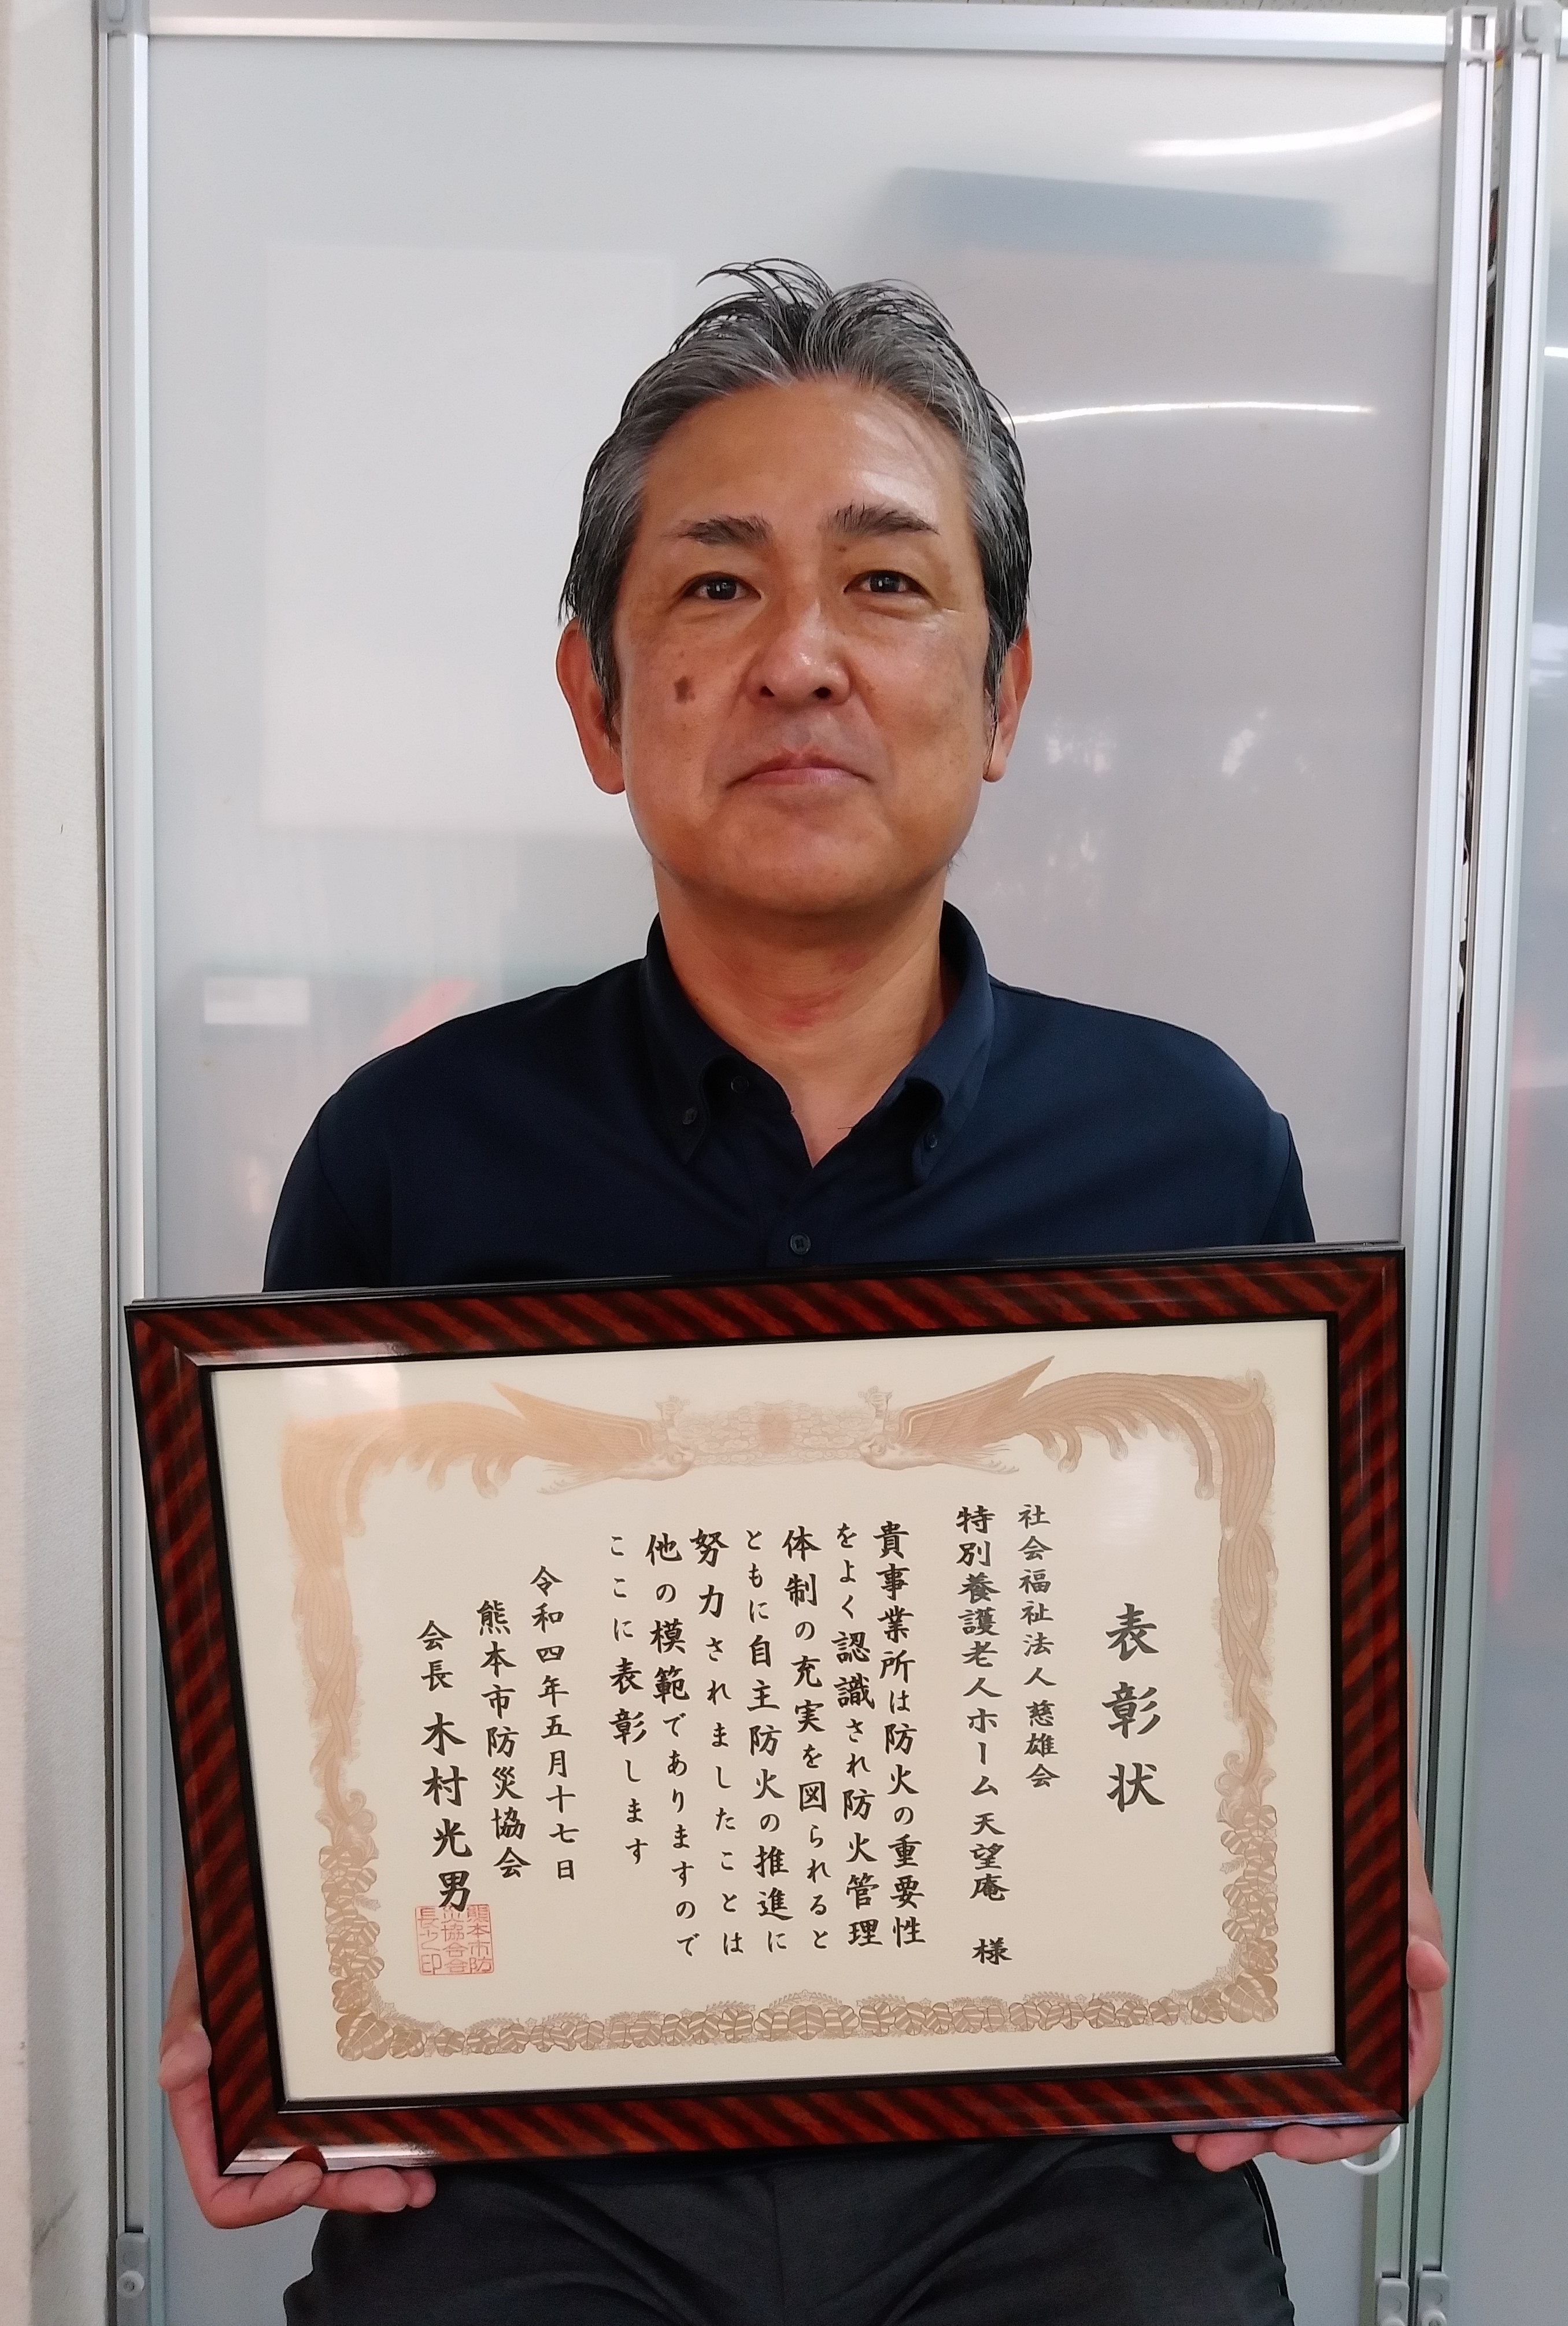 表彰状
社会福祉法人慈雄会
特別養護老人ホーム天望庵 様
貴事業所は防火の重要性
をよく認識され防火管理
体制の充実を図られると
ともに自主防火の推進に
努力されましたことは
他の模範でありますので
ここに表彰します
令和四年五月十七日
熊本市防災協会
会長 木村光男
熊本市防
災協会会
長之印